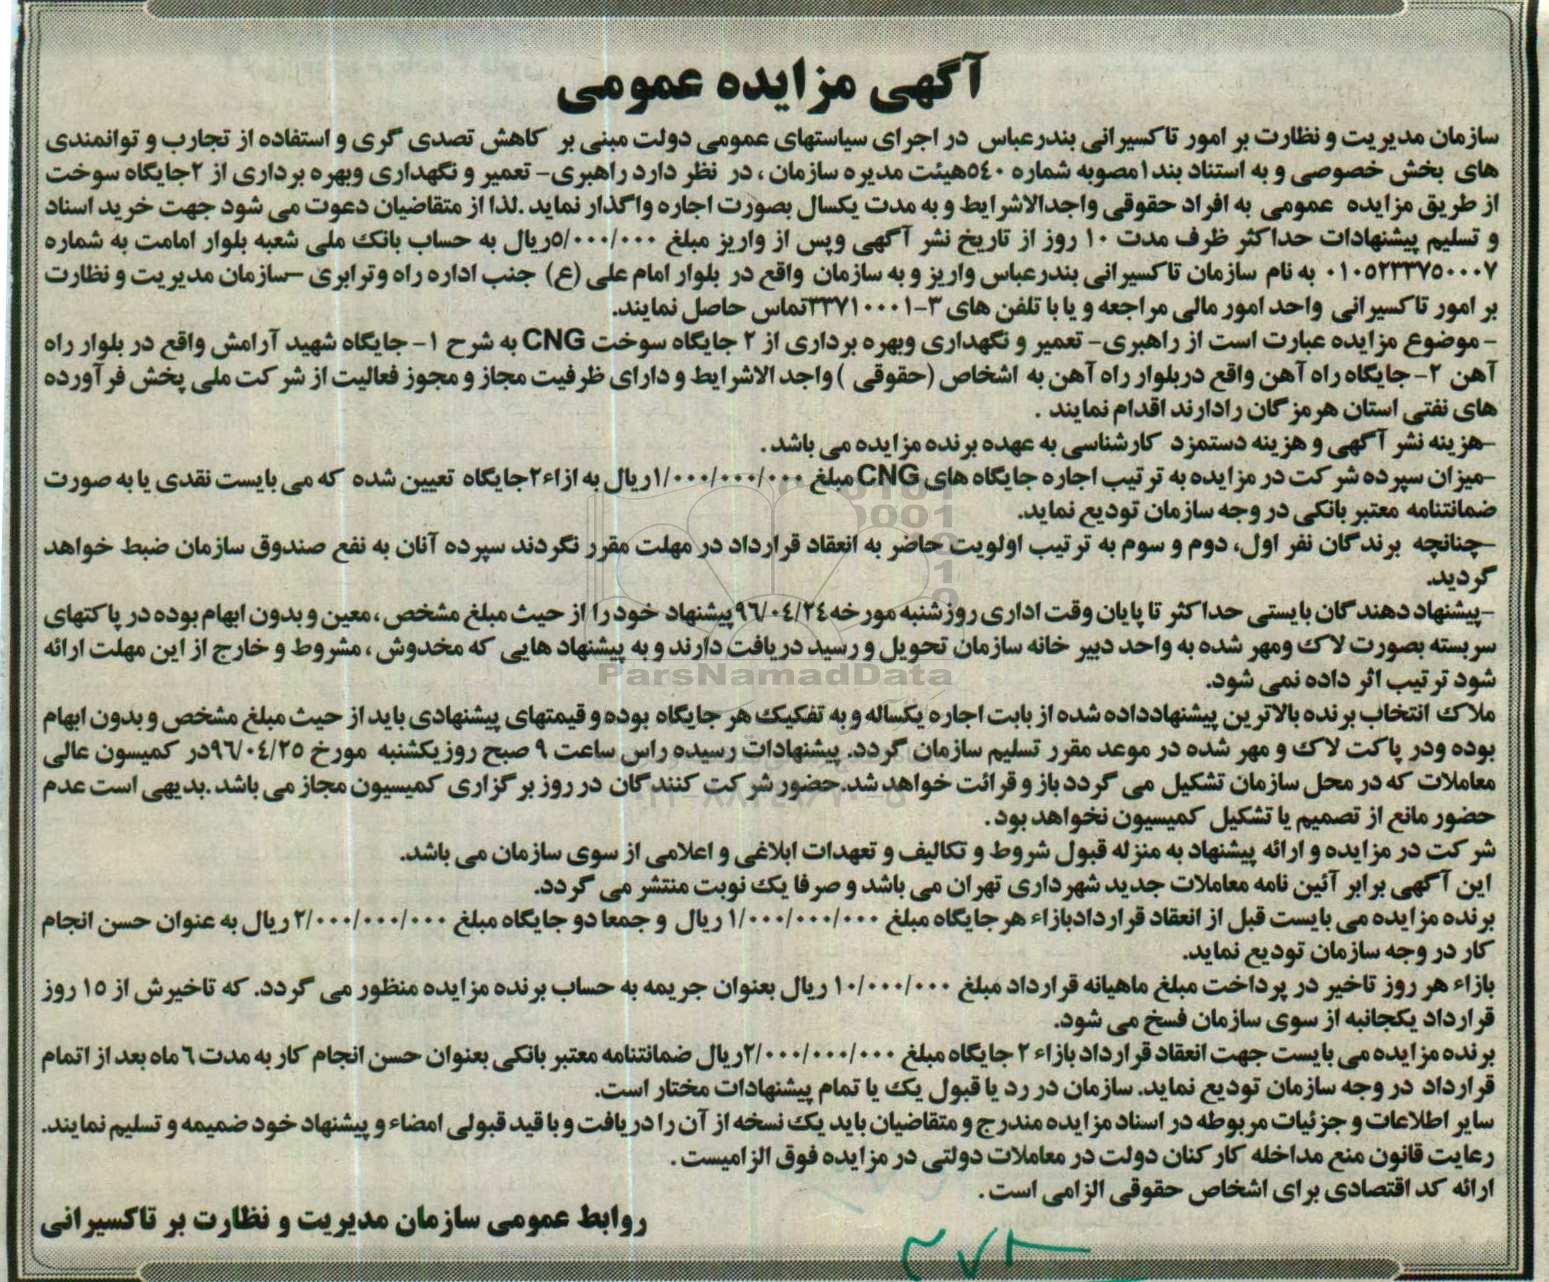 آگهی مزایده عمومی
سازمان مدیریت و نظارت بر امور تاکسیرانی بندرعباس در اجرای سیاستهای عمومی دولت مبنی بر کاهش تصدی گری و استفاده از تجارب و توانمندی
های بخش خصوصی و به استناد بند۱مصوبه شماره ۵۴۰هیئت مدیره سازمان ، در نظر دارد راهبری- تعمیر و نگهداری وبهره برداری از ۲جایگاه سوخت
از طریق مزایده عمومی به افراد حقوقی واجدالاشرایط و به مدت یکسال بصورت اجاره واگذار نماید .لذا از متقاضیان دعوت می شود جهت خرید اسناد
و تسلیم پیشنهادات حداکثر ظرف مدت ۱۰ روز از تاریخ نشر آگهی وپس از واریز مبلغ ۵/۰۰۰/۰۰۰ریال به حساب بانک ملی شعبه بلوار امامت به شماره
۰۱۰۵۲۳۳۷۵۰۰۰۷ به نام سازمان تاکسیرانی بندرعباس واریز و به سازمان واقع در بلوار امام علی (ع) جنب اداره راه وترابری –سازمان مدیریت و نظارت
بر امور تاکسیرانی واحد امور مالی مراجعه و یا با تلفن های ۳-۳۳۷۱۰۰۰۱تماس حاصل نمایند.
- موضوع مزایده عبارت است از راهبری- تعمیر و نگهداری وبهره برداری از ۲ جایگاه سوخت CNG به شرح ۱- جایگاه شهید آرامش واقع در بلوار راه
آهن ۲- جایگاه راه آهن واقع دربلوار راه آهن به اشخاص (حقوقی ) واجد الاشرایط و دارای ظرفیت مجاز و مجوز فعالیت از شرکت ملی پخش فرآورده
های نفتی استان هرمزگان رادارند اقدام نمایند .
–هزینه نشر آگهی و هزینه دستمزد کارشناسی به عهده برنده مزایده می باشد .
–میزان سپرده شرکت در مزایده به ترتیب اجاره جایگاه های CNG مبلغ ۱/۰۰۰/۰۰۰/۰۰۰ریال به ازاء۲جایگاه تعیین شده که می بایست نقدی یا به صورت
ضمانتنامه معتبر بانکی در وجه سازمان تودیع نماید.
–چنانچه برندگان نفر اول، دوم و سوم به ترتیب اولویت حاضر به انعقاد قرارداد در مهلت مقرر نگردند سپرده آنان به نفع صندوق سازمان ضبط خواهد
گردید.
–پیشنهاد دهندگان بایستی حداکثر تا پایان وقت اداری روزشنبه مورخه ۹۶/۰۴/۲۴پیشنهاد خود را از حیث مبلغ مشخص ، معین و بدون ابهام بوده در پاکتهای
سربسته بصورت لاک ومهر شده به واحد دبیر خانه سازمان تحویل و رسید دریافت دارند و به پیشنهاد هایی که مخدوش ، مشروط و خارج از این مهلت ارائه
شود ترتیب اثر داده نمی شود.
ParsNamadData
ملاک انتخاب برنده بالاترین پیشنهادداده شده از بابت اجاره یکساله و به تفکیک هر جایگاه بوده و قیمتهای پیشنهادی باید از حیث مبلغ مشخص و بدون ابهام
بوده ودر پاکت لاک و مهر شده در موعد مقرر تسلیم سازمان گردد. پیشنهادات رسیده راس ساعت ۹ صبح روزیکشنبه مورخ ۹۶/۰۴/۲۵در کمیسون عالی
معاملات که در محل سازمان تشکیل می گردد باز و قرائت خواهد شد.حضور شرکت کنندگان در روز برگزاری کمیسیون مجاز می باشد .بدیهی است عدم
حضور مانع از تصمیم یا تشکیل کمیسیون نخواهد بود .
شرکت در مزایده و ارائه پیشنهاد به منزله قبول شروط و تکالیف و تعهدات ابلاغی و اعلامی از سوی سازمان می باشد.
این آگهی برابر آئین نامه معاملات جدید شهرداری تهران می باشد و صرفا یک نوبت منتشر می گردد.
برنده مزایده می بایست قبل از انعقاد قراردادبازاء هر جایگاه مبلغ ۱/۰۰۰/۰۰۰/۰۰۰ ریال و جمعا دو جایگاه مبلغ ۲/۰۰۰/۰۰۰/۰۰۰ ریال به عنوان حسن انجام
کار در وجه سازمان تودیع نماید.
بازاء هر روز تاخیر در پرداخت مبلغ ماهیانه قرارداد مبلغ ۱۰/۰۰۰/۰۰۰ ریال بعنوان جریمه به حساب برنده مزایده منظور می گردد. که تاخیرش از ۱۵ روز
قرارداد یکجانبه از سوی سازمان فسخ می شود.
برنده مزایده می بایست جهت انعقاد قرارداد بازاء ۲ جایگاه مبلغ ۲/۰۰۰/۰۰۰/۰۰۰ریال ضمانتنامه معتبر بانکی بعنوان حسن انجام کار به مدت ۶ ماه بعد از اتمام
قرارداد در وجه سازمان تودیع نماید. سازمان در رد یا قبول یک یا تمام پیشنهادات مختار است.
سایر اطلاعات و جزئیات مربوطه در اسناد مزایده مندرج و متقاضیان باید یک نسخه از آن را دریافت و با قید قبولی امضاء و پیشنهاد خود ضمیمه و تسلیم نمایند.
رعایت قانون منع مداخله کارکنان دولت در معاملات دولتی در مزایده فوق الزامیست .
ارائه کد اقتصادی برای اشخاص حقوقی الزامی است .
روابط عمومی سازمان مدیریت و نظارت بر تاکسیرانی